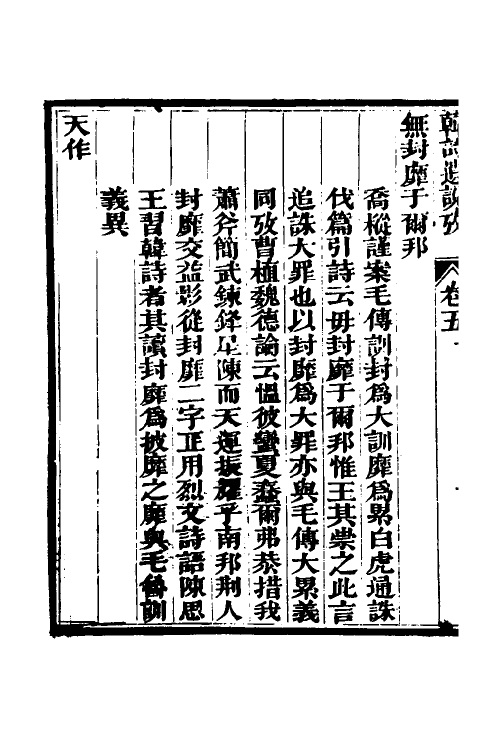 韓詩遺說攷　卷五
無封靡于爾邦
喬樅謹案毛傳訓封爲大訓靡爲累白虎通誅
伐篇引詩云毋封靡于爾邦惟王其崇之此言
追誅大罪也以封靡爲大罪亦與毛傳大累義
同攷曹植魏德論云慍彼蠻夏蠢爾弗恭措我
蕭斧簡武鍊鋒星陳而天運振耀乎南邦荆人
封靡交益影從封靡二字正用烈文詩語陳思
王習韓詩者其讀封靡爲披靡之靡與毛魯訓
義異
天作